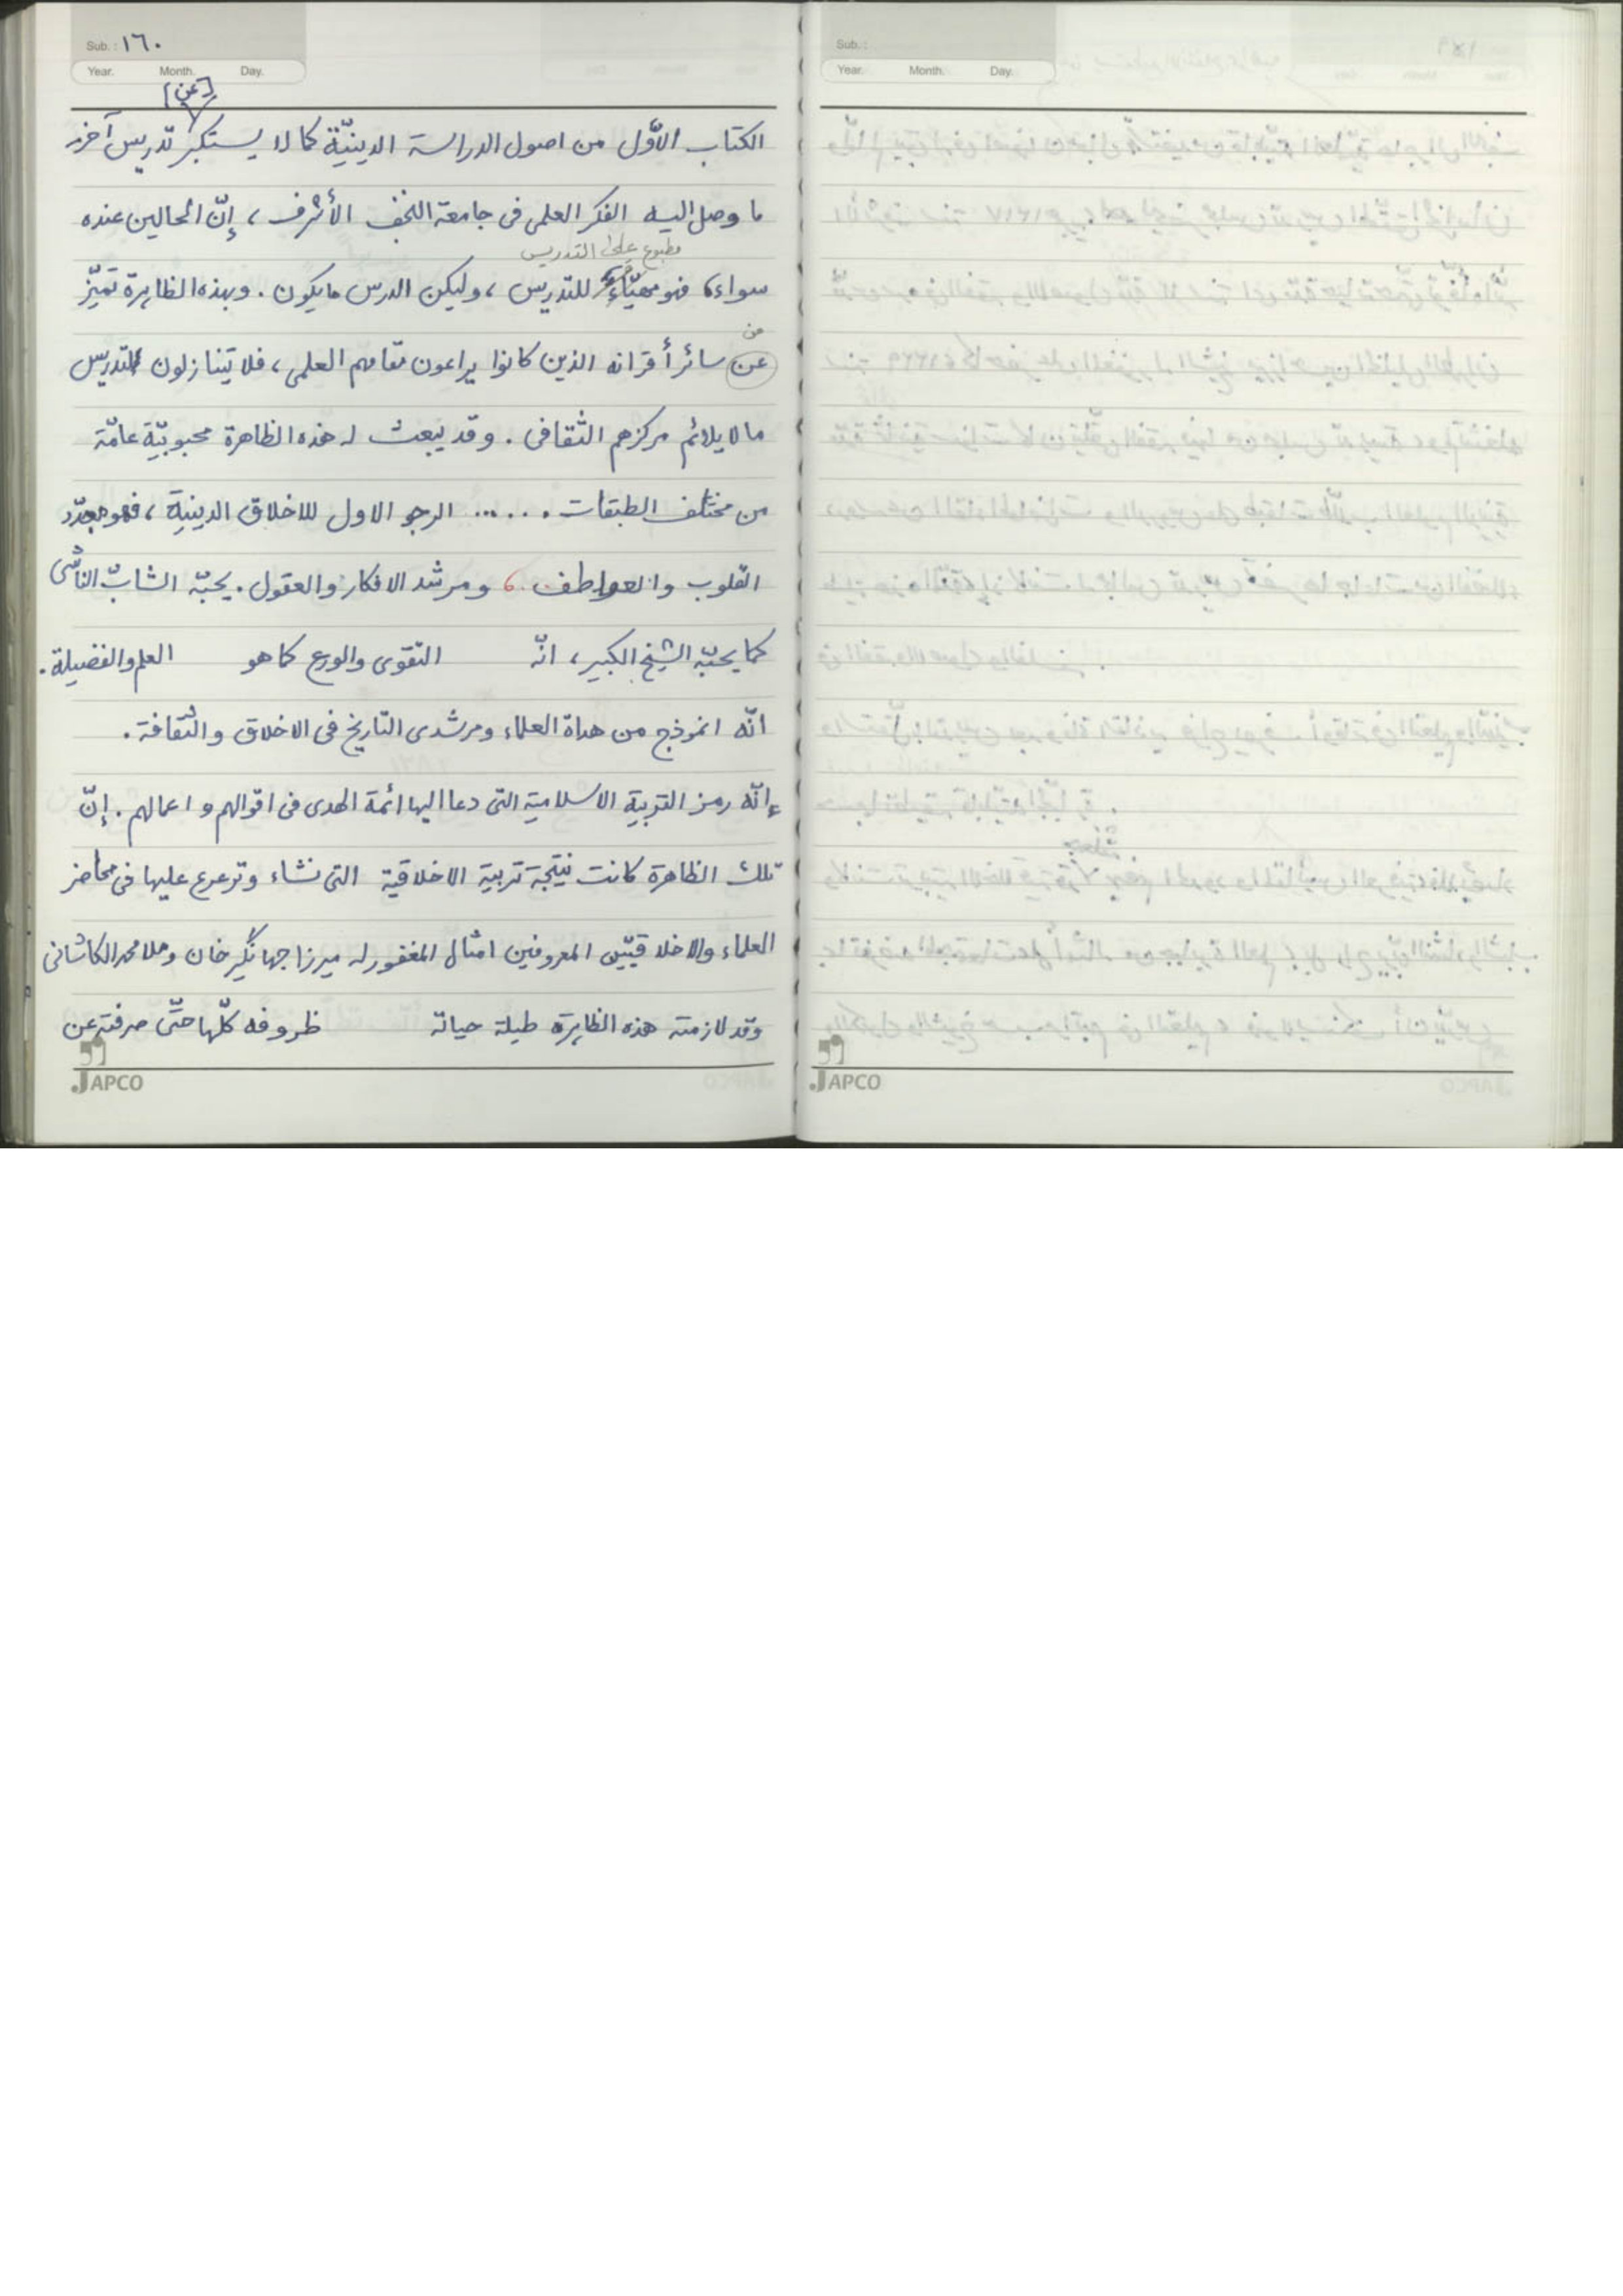 Sub. : ١٦٠
Year. Month. Day.
[عن]
الكتاب الأوّل من اصول الدراسة الدينيّة كما لا يستكبر تدريس آخر
ما وصل اليه الفكر العلمى فى جامعة النجف الأشرف ، إنّ الحالين عنده
مطبوع على التدريس
سواء، فهو مهيّاء للتدريس ، وليكن الدرس مايكون . وبهذه الظاهرة تميّز
من
عن سائر أقرانه الذين كانوا يراعون مقامهم العلمى ، فلا يتنازلون لتدريس
ما لا يلائم مركزهم الثقافى . وقد يبعث له هذه الظاهرة محبوبيّة عامّة
من مختلف الطبقات ...... الرجو الاول للاخلاق الدينية ، فهو
القلوب والعواطف ، ومرشد الافكار والعقول . يحبّه الشابّ الناشى
كما يحبّه الشيخ الكبير ، انّه التقوى والورع كما هو العلم والفضيلة .
انّه انموذج من هداة العلماء ومرشدى التاريخ فى الاخلاق والثقافة .
إنّه رمز التربية الاسلامية التى دعا اليها ائمة الهدى فى اقوالهم و اعمالهم . إنّ
تلك الظاهرة كانت نتيجة تربية الاخلاقية التى نشاء وترعرع عليها فى محاضر
العلماء والاخلاقيّين المعروفين امثال المغفور له ميرزا جهانگير خان وملا محمد الكاشانى
وقد لازمته هذه الظاهرة طيلة حياته ظروفه كلّها حتّى صرفته عن
JAPCO
Sub. :
Year. Month. Day.
JAPCO